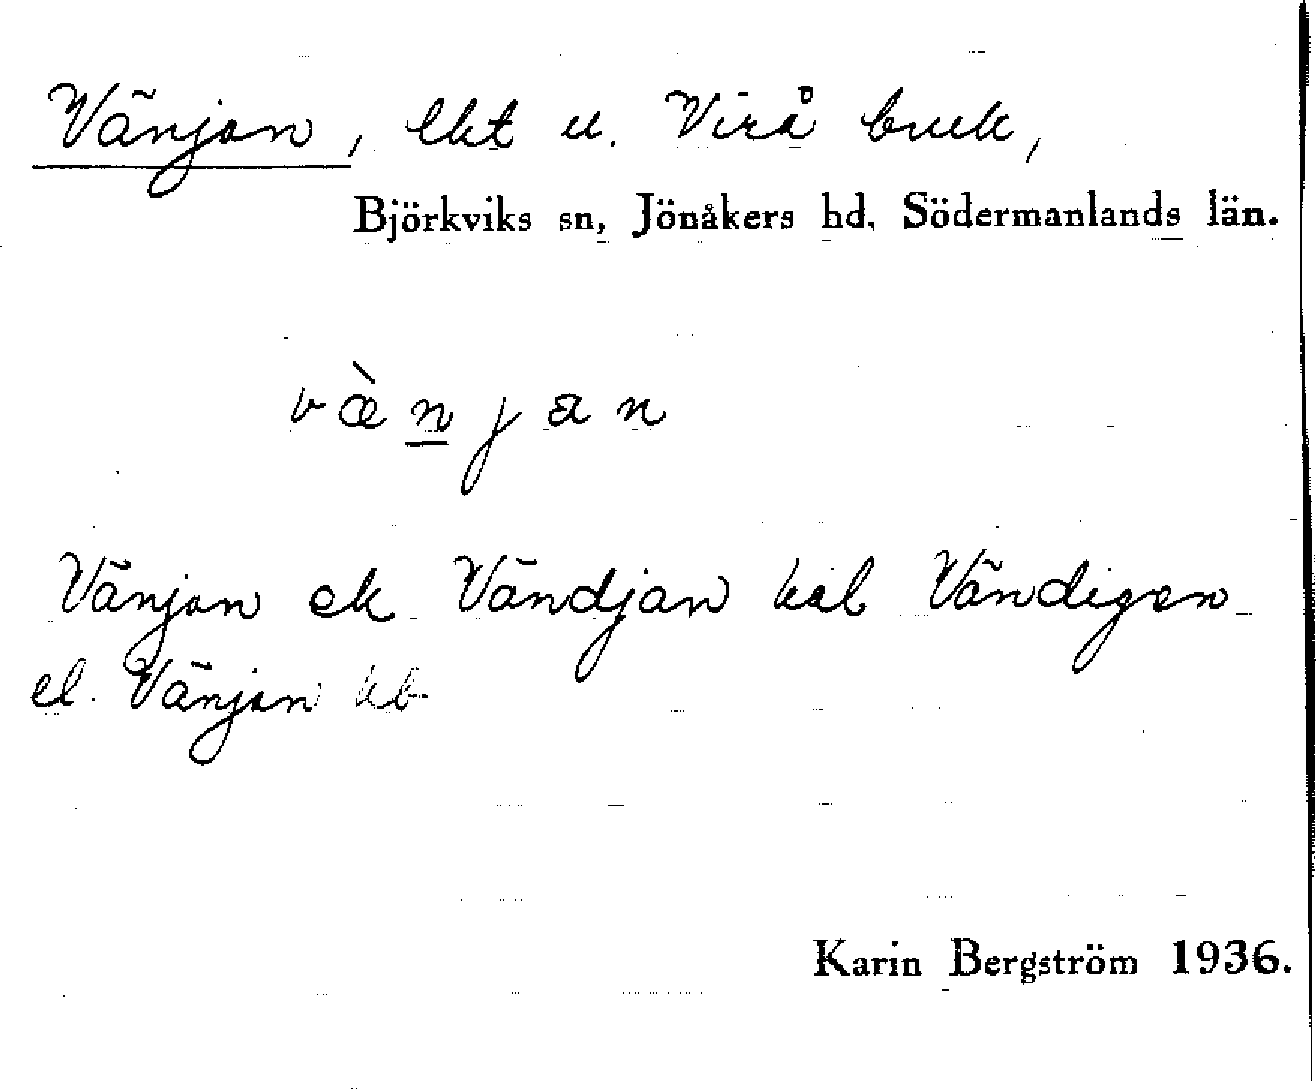 Vänjan, lht u. Virå bruk,
Björkviks sn, Jönåkers hd, Södermanlands län.
væ̀n̲jan
Vänjan ek Vändjan häl Vändigen
el. Vänjan hb
Karin Bergström 1936.